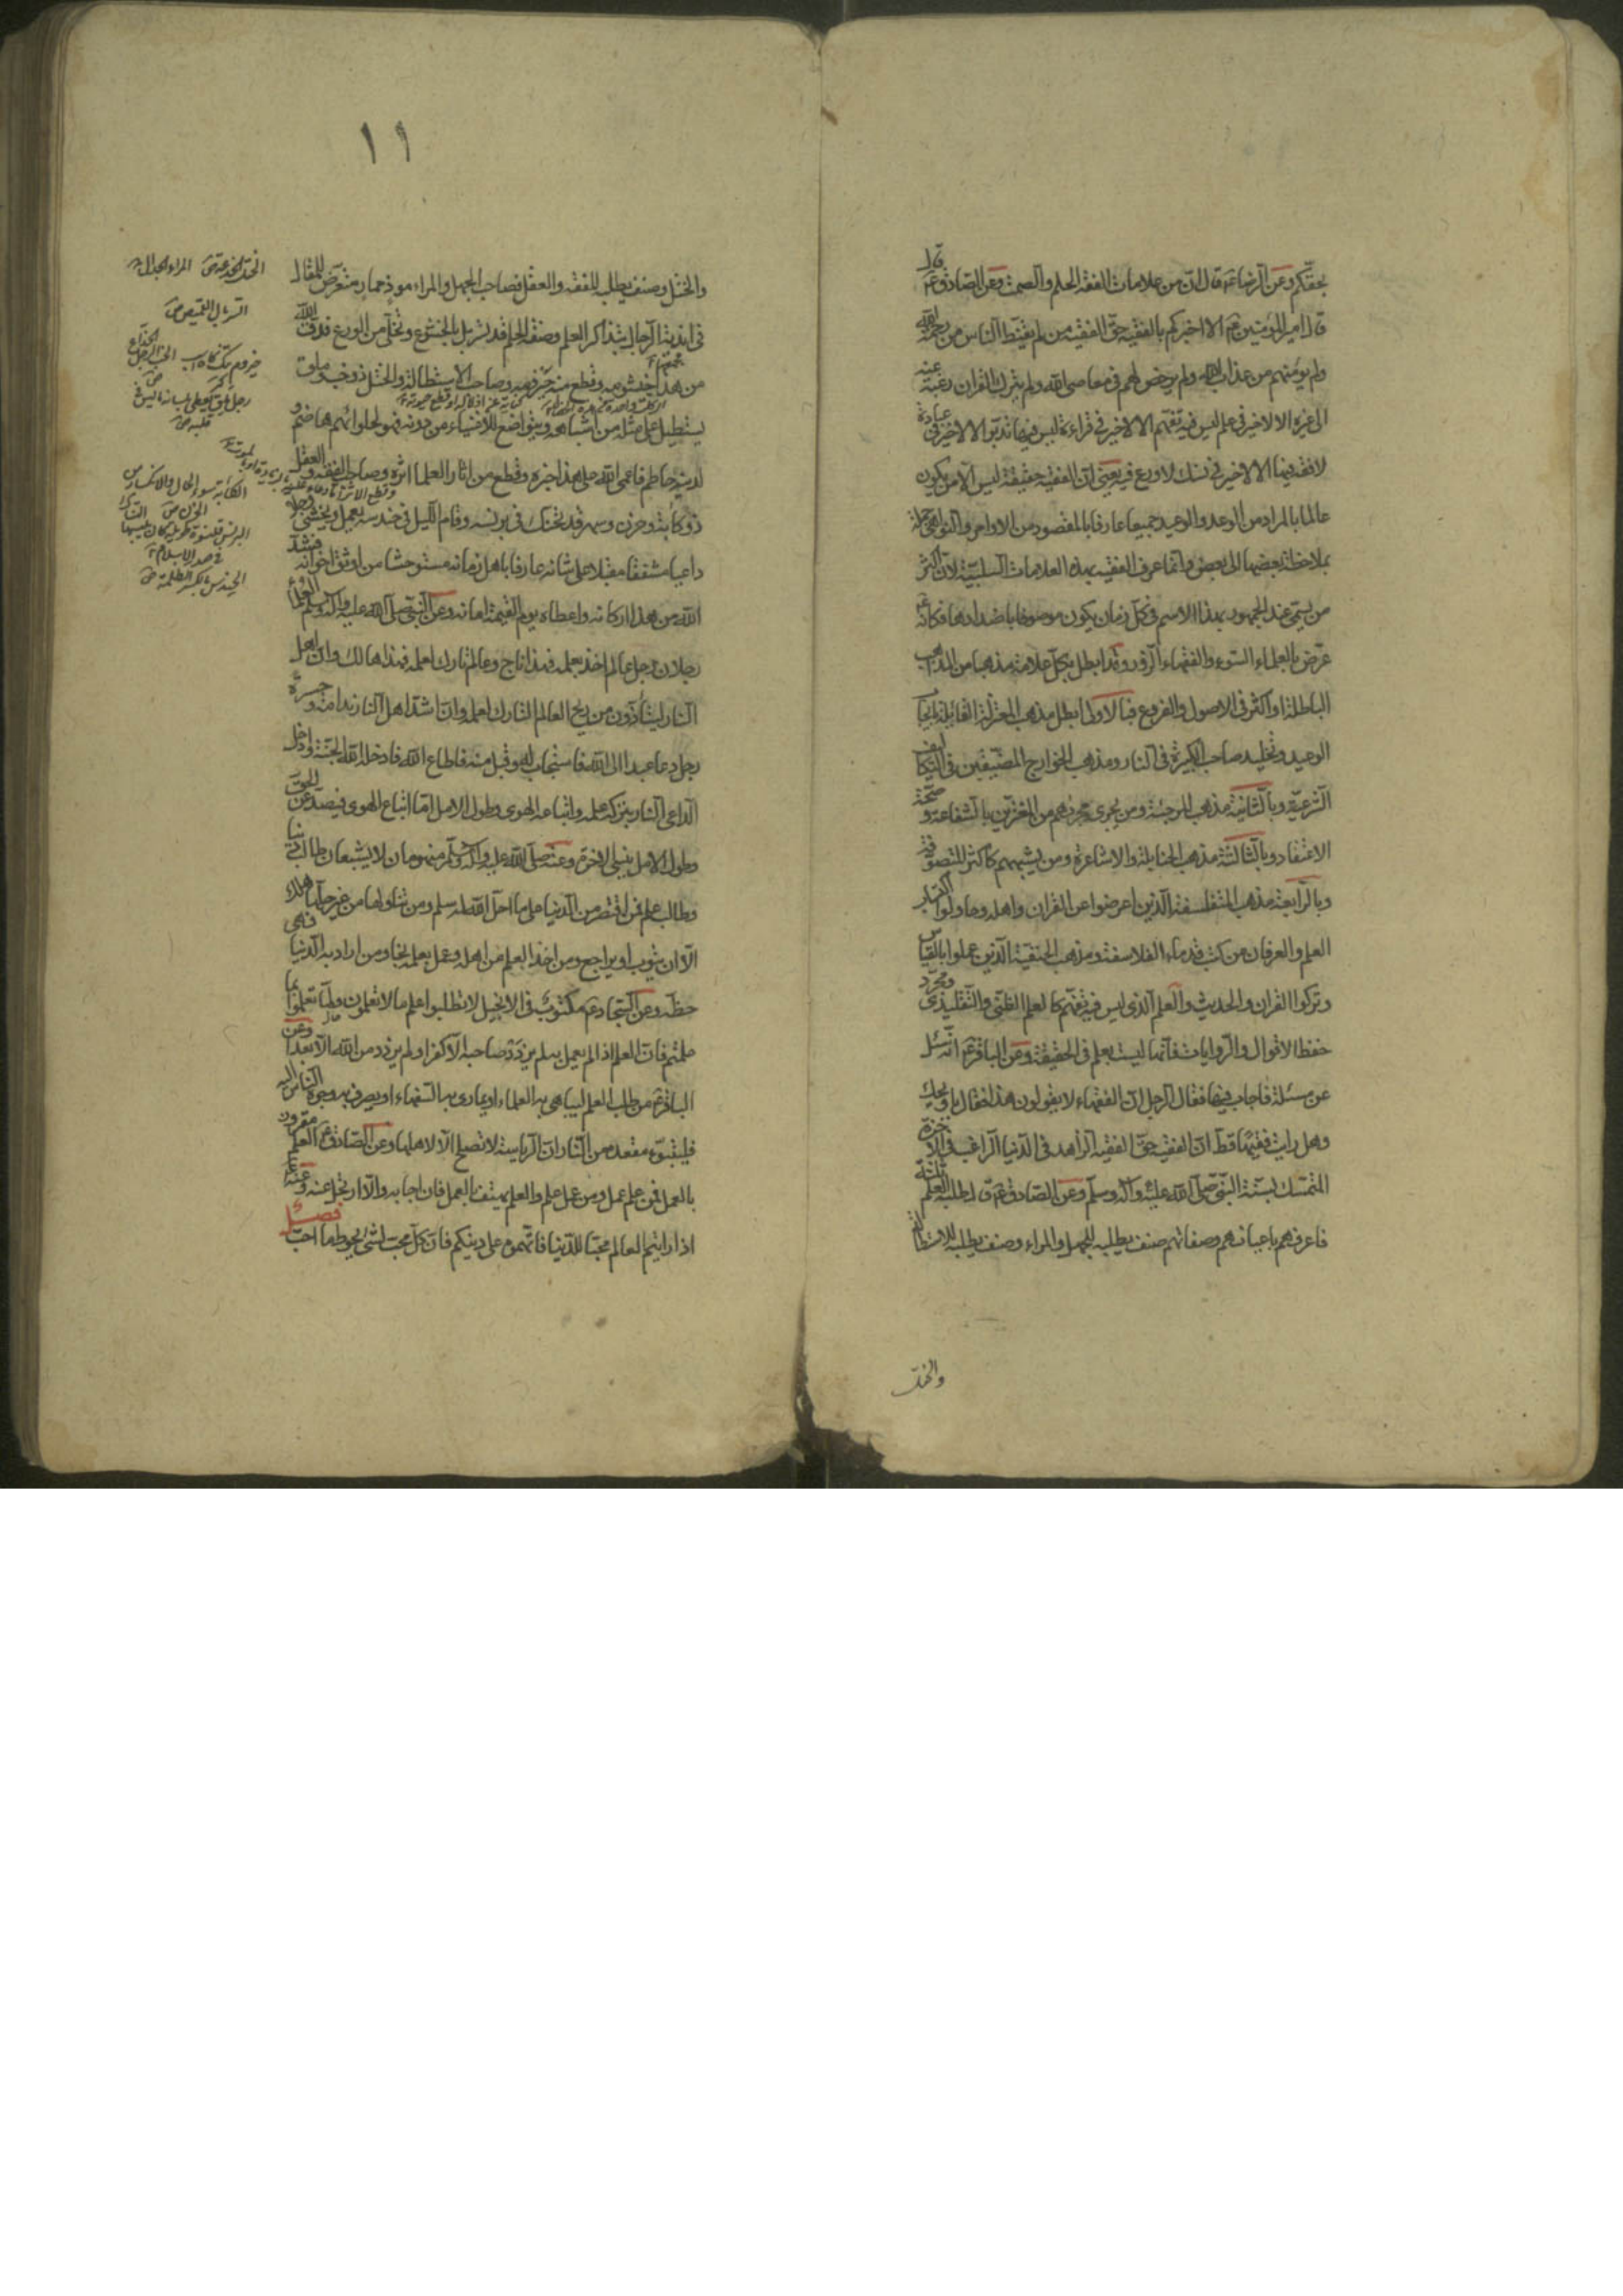 بحقكم وعن الرضا عم قال ان من علامات الفقه الحلم والصمت وعن الصادق عم قال
قال امير المؤمنين عم الا اخبركم بالفقيه حق الفقيه من لم يقنط الناس من رحمة الله
ولم يؤمنهم من عذاب الله ولم يرخص لهم في معاصي الله ولم يترك القران رغبة عنه
الى غيره الا لا خير في علم ليس فيه تفهم الا لا خير في قراءة ليس فيها تدبر الا لا خير في عبادة
لا فقه فيها الا لا خير في نسك لا ورع فيه يعني ان الفقيه حقيقة ليس الا من يكون
عالما بالمراد من الوعد والوعيد جميعا عارفا بالمقصود من الاوامر والنواهي جملة
بملاحظة بعضها الى بعض وانما عرف الفقيه بهذه العلامات السلبية لان اكثر
من يسمى عند الجمهور بهذا الاسم في كل زمان يكون موصوفا باضدادها فكانه عم
عرض بالعلماء السوء والفقهاء الزور وقد ابطل بكل علامة مذهبا من المذاهب
الباطلة او اكثر في الاصول والفروع فبالاولى ابطل مذهب المعتزلة القائلة بايجاب
الوعيد وتخليد صاحب الكبيرة في النار ومذهب الخوارج المضيقين في التكاليف
الشرعية وبالثانية مذهب المرجئة ومن يجري مجراهم من المغترين بالشفاعة و صحة
الاعتقاد وبالثالثة مذهب الحنابلة والاشاعرة ومن يشبههم كاكثر المتصوفة
وبالرابعة مذهب المتفلسفة الذين اعرضوا عن القران واهله وحاولوا اكتساب
العلم والعرفان من كتب قدماء الفلاسفة ومذهب الحنفية الذين عملوا بالقياس
وتركوا القران والحديث والعلم الذي ليس فيه تفهم كالعلم الظني والتقليدي ومجرد
حفظ الاقوال والروايات فانها ليست بعلم في الحقيقة وعن الباقر عم انه سئل
عن مسئلة فاجاب فيها فقال الرجل ان الفقهاء لا يقولون هذا فقال يا ويحك
وهل رايت فقيها قط ان الفقيه حق الفقيه الزاهد في الدنيا الراغب في الاخرة
المتمسك بسنة النبي صلى الله عليه وآله وسلم وعن الصادق عم قال طلبة العلم ثلثة
فاعرفهم باعيانهم وصفاتهم صنف يطلبه للجهل والمراء وصنف يطلبه للاستطالة
والختل
١١
والختل وصنف يطلبه للفقه والعقل فصاحب الجهل والمراء موذ ممار متعرض للمقال
في اندية الرجال بتذاكر العلم وصفة الحلم قد تسربل بالخشوع وتخلى من الورع فدق الله
من هذا خيشومه وقطع منه حيزومه وصاحب الاستطالة والختل ذو خب وملق
يستطيل على مثله من اشباهه ويتواضع للاغنياء من دونه فهو لحلوائهم هاضم و
لدينه حاطم فاعمى الله على هذا خبره وقطع من اثار العلماء اثره وصاحب الفقه والعقل
ذو كآبة وحزن وسهر قد تحنك في برنسه وقام الليل في حندسه يعمل ويخشى وجلا
داعيا مشفقا مقبلا على شانه عارفا باهل زمانه مستوحشا من اوثق اخوانه فشد
الله من هذا اركانه واعطاه يوم القيمة امانه وعن النبي صلى الله عليه وآله وسلم العلماء
رجلان رجل عالم اخذ بعلمه فهذا ناج وعالم تارك لعلمه فهذا هالك وان اهل
النار ليتاذون من ريح العالم التارك لعلمه وان اشد اهل النار ندامة وحسرة
رجل دعا عبدا الى الله فاستجاب له وقبل منه فاطاع الله فادخله الله الجنة وادخل
الداعي النار بتركه علمه واتباعه الهوى وطول الامل اما اتباع الهوى فيصد عن الحق
وطول الامل ينسي الاخرة وعنه صلى الله عليه وآله وسلم منهومان لا يشبعان طالب دنيا
وطالب علم فمن اقتصر من الدنيا على ما احل الله له سلم ومن تناولها من غير حلها هلك
الا ان يتوب او يراجع ومن اخذ العلم من اهله وعمل بعلمه نجا ومن اراد به الدنيا فهي
حظه وعن السجاد عم مكتوب في الانجيل لا تطلبوا علم ما لا تعلمون ولما تعملوا بما
علمتم فان العلم اذا لم يعمل به لم يزدد صاحبه الا كفرا ولم يزدد من الله الا بعدا وعن
الباقر عم من طلب العلم ليباهي به العلماء او يماري به السفهاء او يصرف به وجوه الناس اليه
فليتبوء مقعده من النار ان الرياسة لا تصلح الا لاهلها وعن الصادق عم العلم مقرون
بالعمل فمن علم عمل ومن عمل علم والعلم يهتف بالعمل فان اجابه والا ارتحل عنه وعنه عم
اذا رايتم العالم محبا للدنيا فاتهموه على دينكم فان كل محب لشئ يحوط ما احب فصل
الختل الخدعة ص المراء الجدال
السربال القميص ص
الحندس بالكسر الظلمة ص